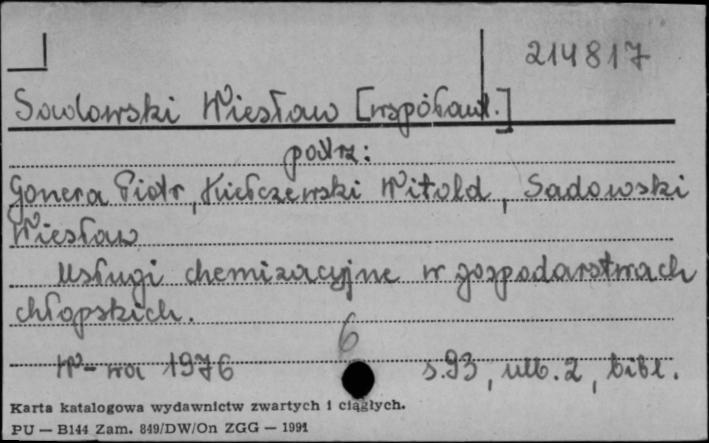 214817
Sadowski Wiesław [współaut.]
patrz:
Gonera Piotr, Kiełczewski Witold, Sadowski
Wiesław
Usługi chemizacyjne w gospodarstwach
chłopskich.
6
W-wa 1976 s.93, nlb.2, bibl.
Karta katalogowa wydawnictw zwartych i ciągłych.
PU — B144 Zam. 849/DW/On ZGG — 1991